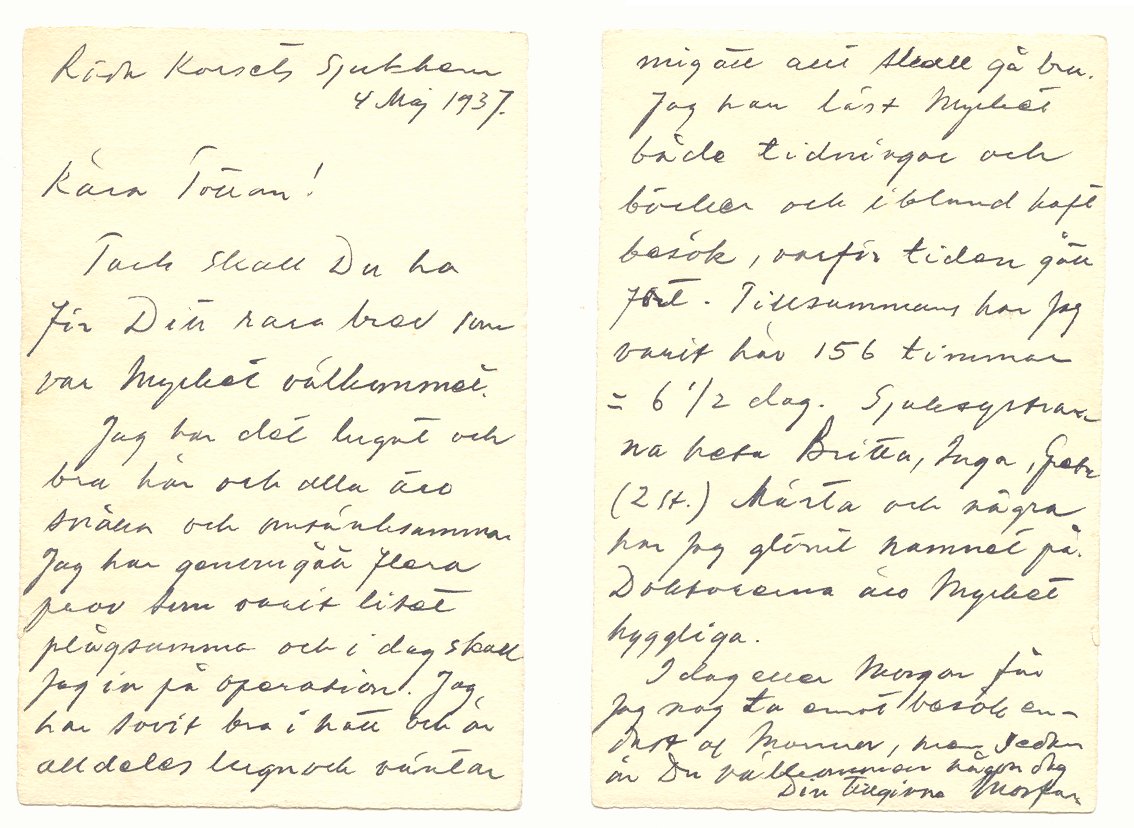 Röda Korsets Sjukhem
4 Maj 1937.
Kära Tottan!
Tack skall Du ha
för Ditt rara brev som
var mycket välkommet.
Jag har det lugnt och
bra här och alla äro
snälla och omtänksamma
Jag har genomgått flera
prov som varit litet
plågsamma och i dag skall
jag in på operation. Jag
har sovit bra i natt och är
alldeles lugn och väntar
mig att allt skall gå bra.
Jag har läst mycket
både tidningar och
böcker och ibland haft
besök, varför tiden gått
fort. Tillsammans har jag
varit här 156 timmar
= 6 1/2 dag. Sjuksystrar
na heta Britta, Inga, Greta
(2 st.) Märta och några
har jag glömt namnet på.
Doktorerna äro mycket
hyggliga.
I dag eller morgon får
jag nog ta emot besök en-
dast af Mormor, men sedan
är Du välkommen någon dag
Din tillgivne Morfar